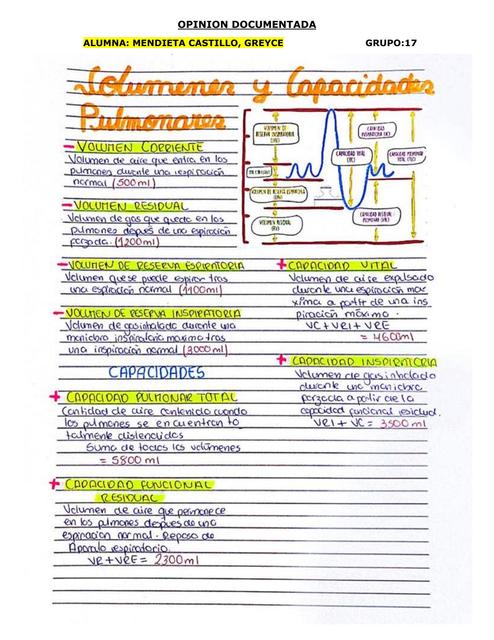 OPINION DOCUMENTADA
ALUMNA: MENDIETA CASTILLO, GREYCE GRUPO:17
Volumenes y Capacidades
Pulmonares
- VOLUMEN CORRIENTE
Volumen de aire que entra en los
pulmones durante una respiración
normal (500ml)
- VOLUMEN RESIDUAL
Volumen de gas que queda en los
pulmones dspués de una espiración
forzada. (1200ml)
- VOLUMEN DE RESERVA ESPIRATORIA
Volumen que se puede espirar tras
una espiración normal (1100ml)
- VOLUMEN DE RESERVA INSPIRATORIA
Volumen de gas inhalado durante una
maniobra inspiratoria maxima tras
una inspiración normal (3000ml)
CAPACIDADES
+ CAPACIDAD PULMONAR TOTAL
Cantidad de aire contenido cuando
los pulmones se encuentran to
talmente distendidos
Suma de todos los volúmenes
= 5800 ml
+ CAPACIDAD FUNCIONAL
RESIDUAL
Volumen de aire que permanece
en los pulmones despues de una
espiración normal. Reposo de
Aparato respiratorio.
VR + VRE = 2300ml
VOLUMEN DE
RESERVA INSPIRATORIA
VOLUMEN DE RESERVA ESPIRATORIA
VOLUMEN RESIDUAL
CAPACIDAD VITAL
CAPACIDAD
CAPACIDAD PULMONAR
TOTAL
CAPACIDAD RESIDUAL
+ CAPACIDAD VITAL
Volumen de aire expulsado
durante una espiración max
xima a partir de una ins
piración máxima.
VC + VRI + VRE
= 4600ml
+ CAPACIDAD INSPIRATORIA
Volumen de gas inhalado
durante una maniobra
forzada a patir de la
capacidad funcional residual.
VRI + VC = 3500 ml